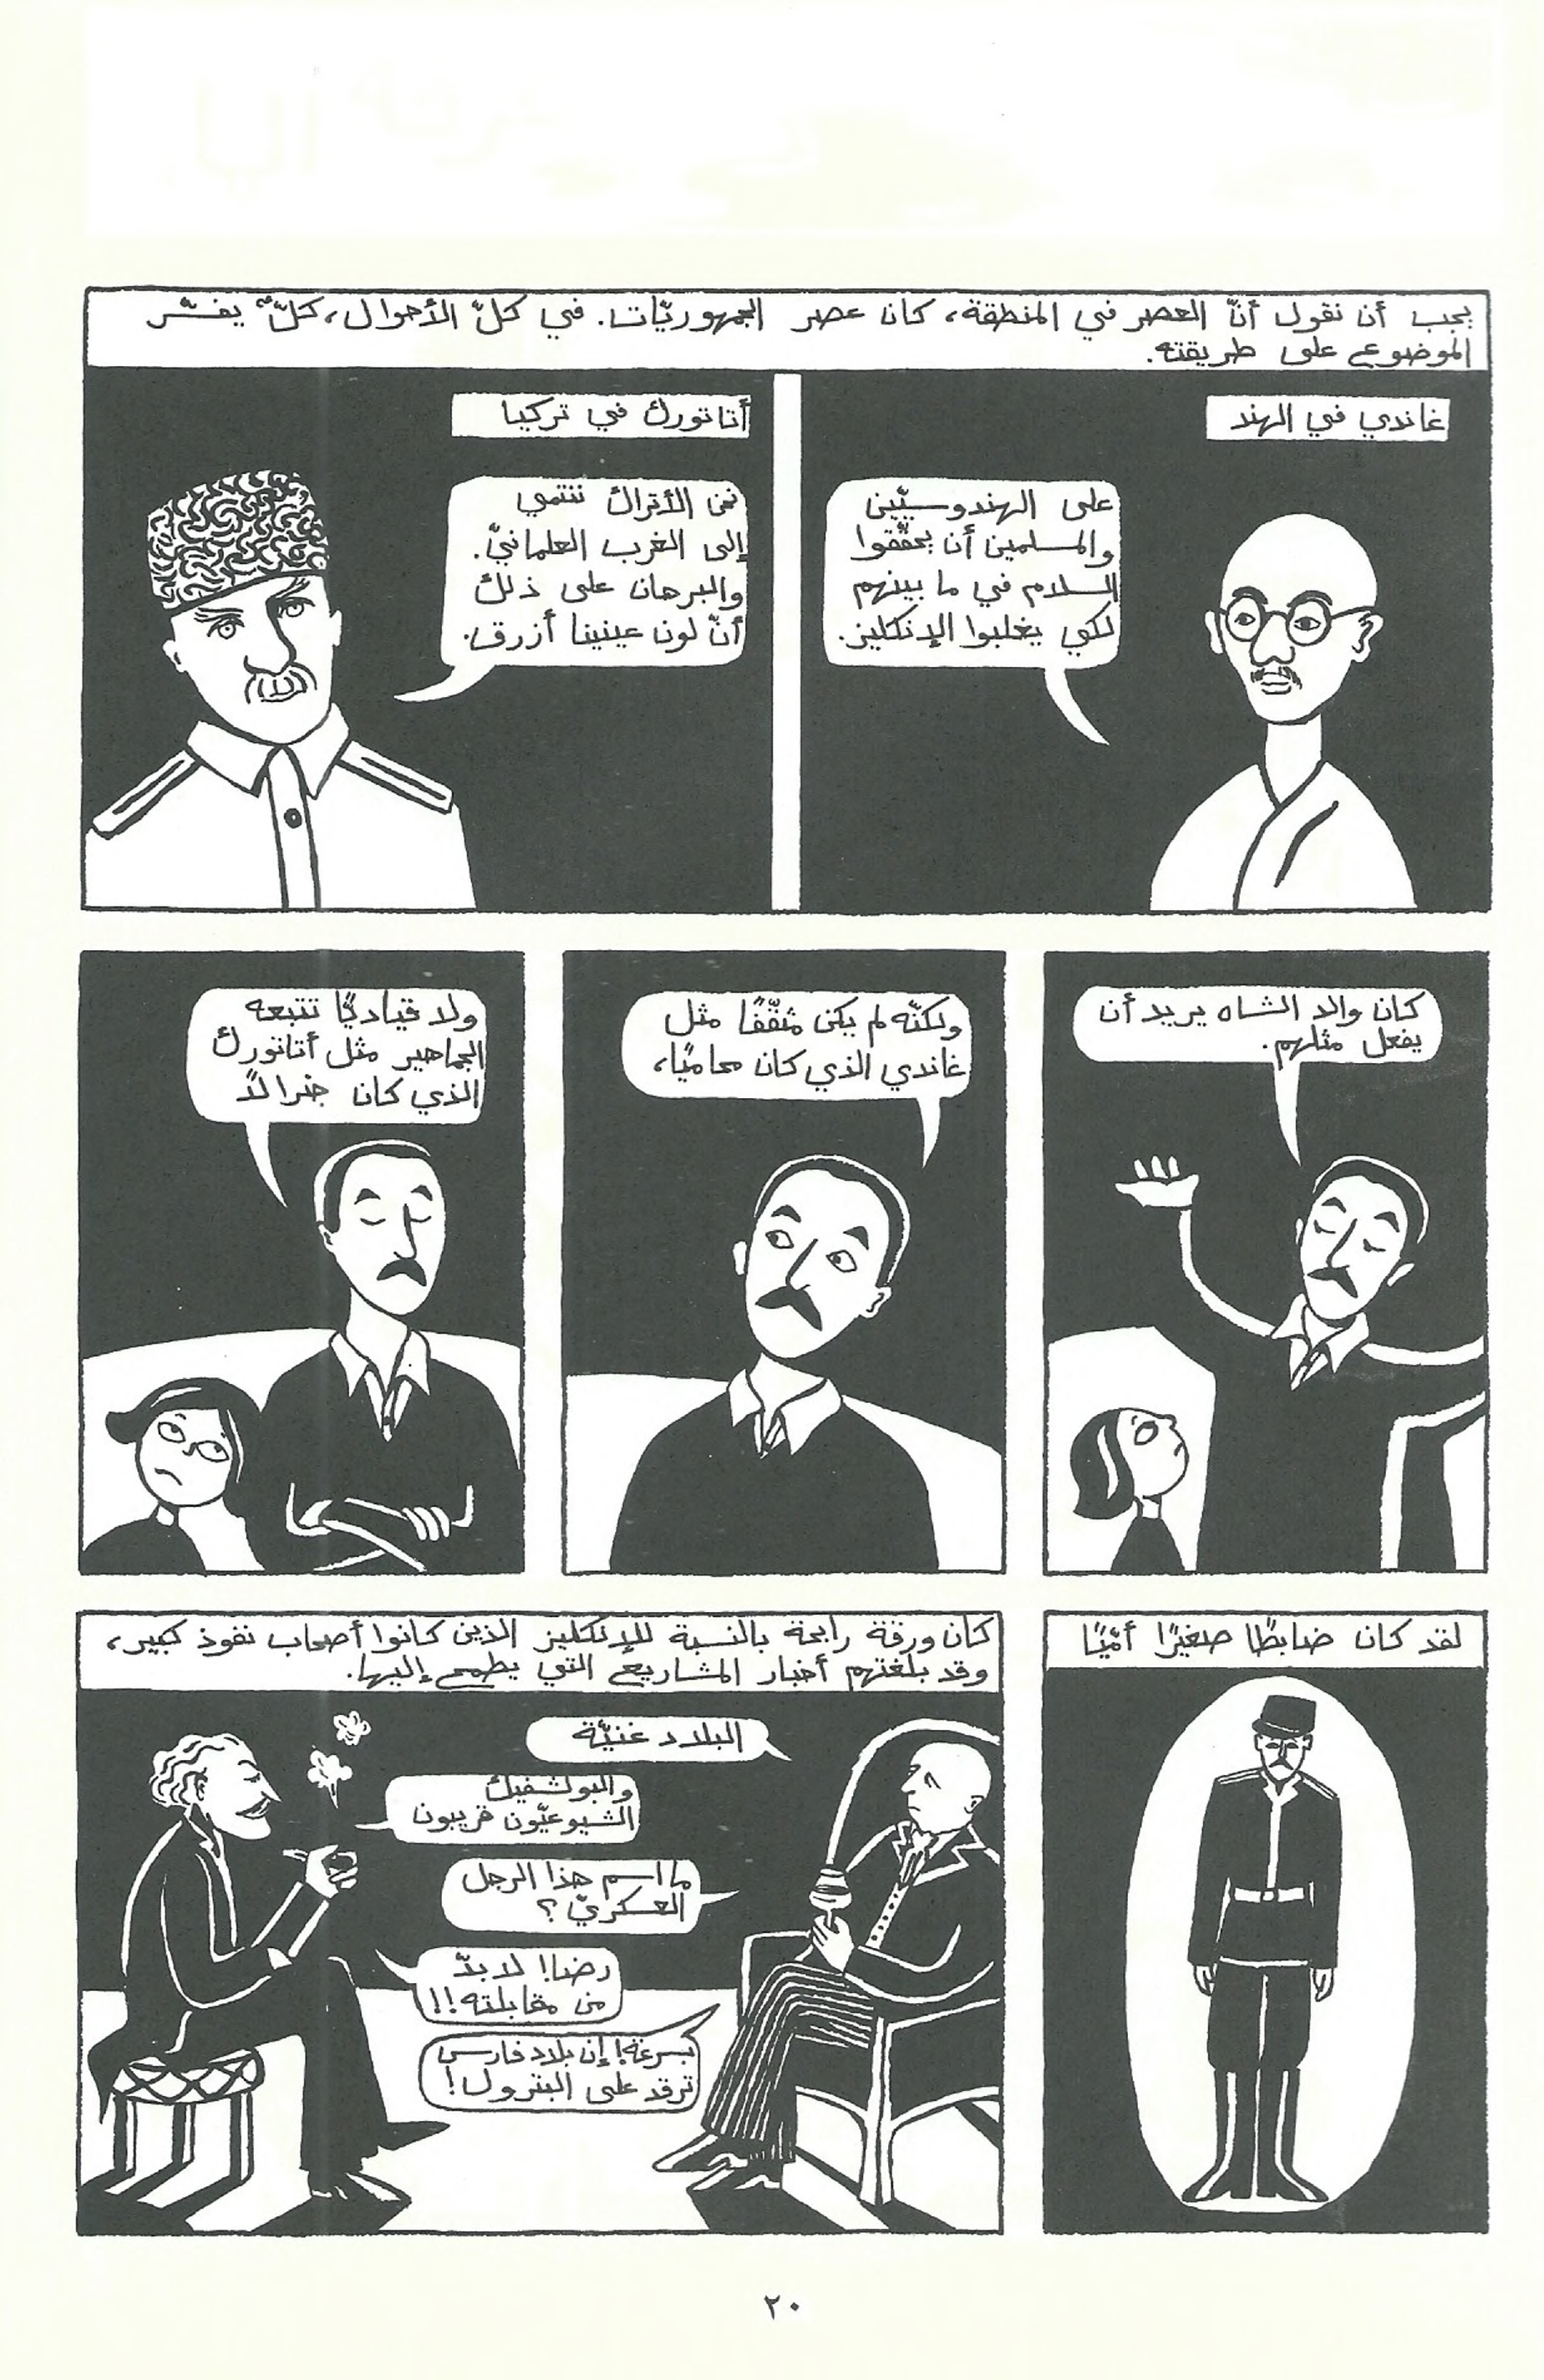 يجب أن نقول أنّ العصر في المنطقة، كان عصر الجمهوريّات. في كلّ الأحوال، كلٌّ يفسّر
الموضوع على طريقته.
غاندي في الهند
على الهندوسيّين
والمسلمين أن يحقّقوا
السلام في ما بينهم
لكي يغلبوا الإنكليز.
أتاتورك في تركيا
نحن الأتراك ننتمي
إلى الغرب العلمانيّ.
والبرهان على ذلك
أنّ لون عينينا أزرق.
كان والد الشاه يريد أن
يفعل مثلهم.
ولكنّه لم يكن مثقّفًا مثل
غاندي الذي كان محاميًا،
ولا قياديًّا تتبعه
الجماهير مثل أتاتورك
الذي كان جنرالاً
لقد كان ضابطًا صغيرًا أمّيًّا
كان ورقة رابحة بالنسبة للإنكليز الذين كانوا أصحاب نفوذ كبير،
وقد بلغتهم أخبار المشاريع التي يطمح إليها.
البلاد غنيّة
والبولشفيك
الشيوعيّون قريبون
ما اسم هذا الرجل
العسكريّ؟
رضا! لا بدّ
من مقابلته!!
بسرعة! إن بلاد فارس
ترقد على البترول!
٢٠